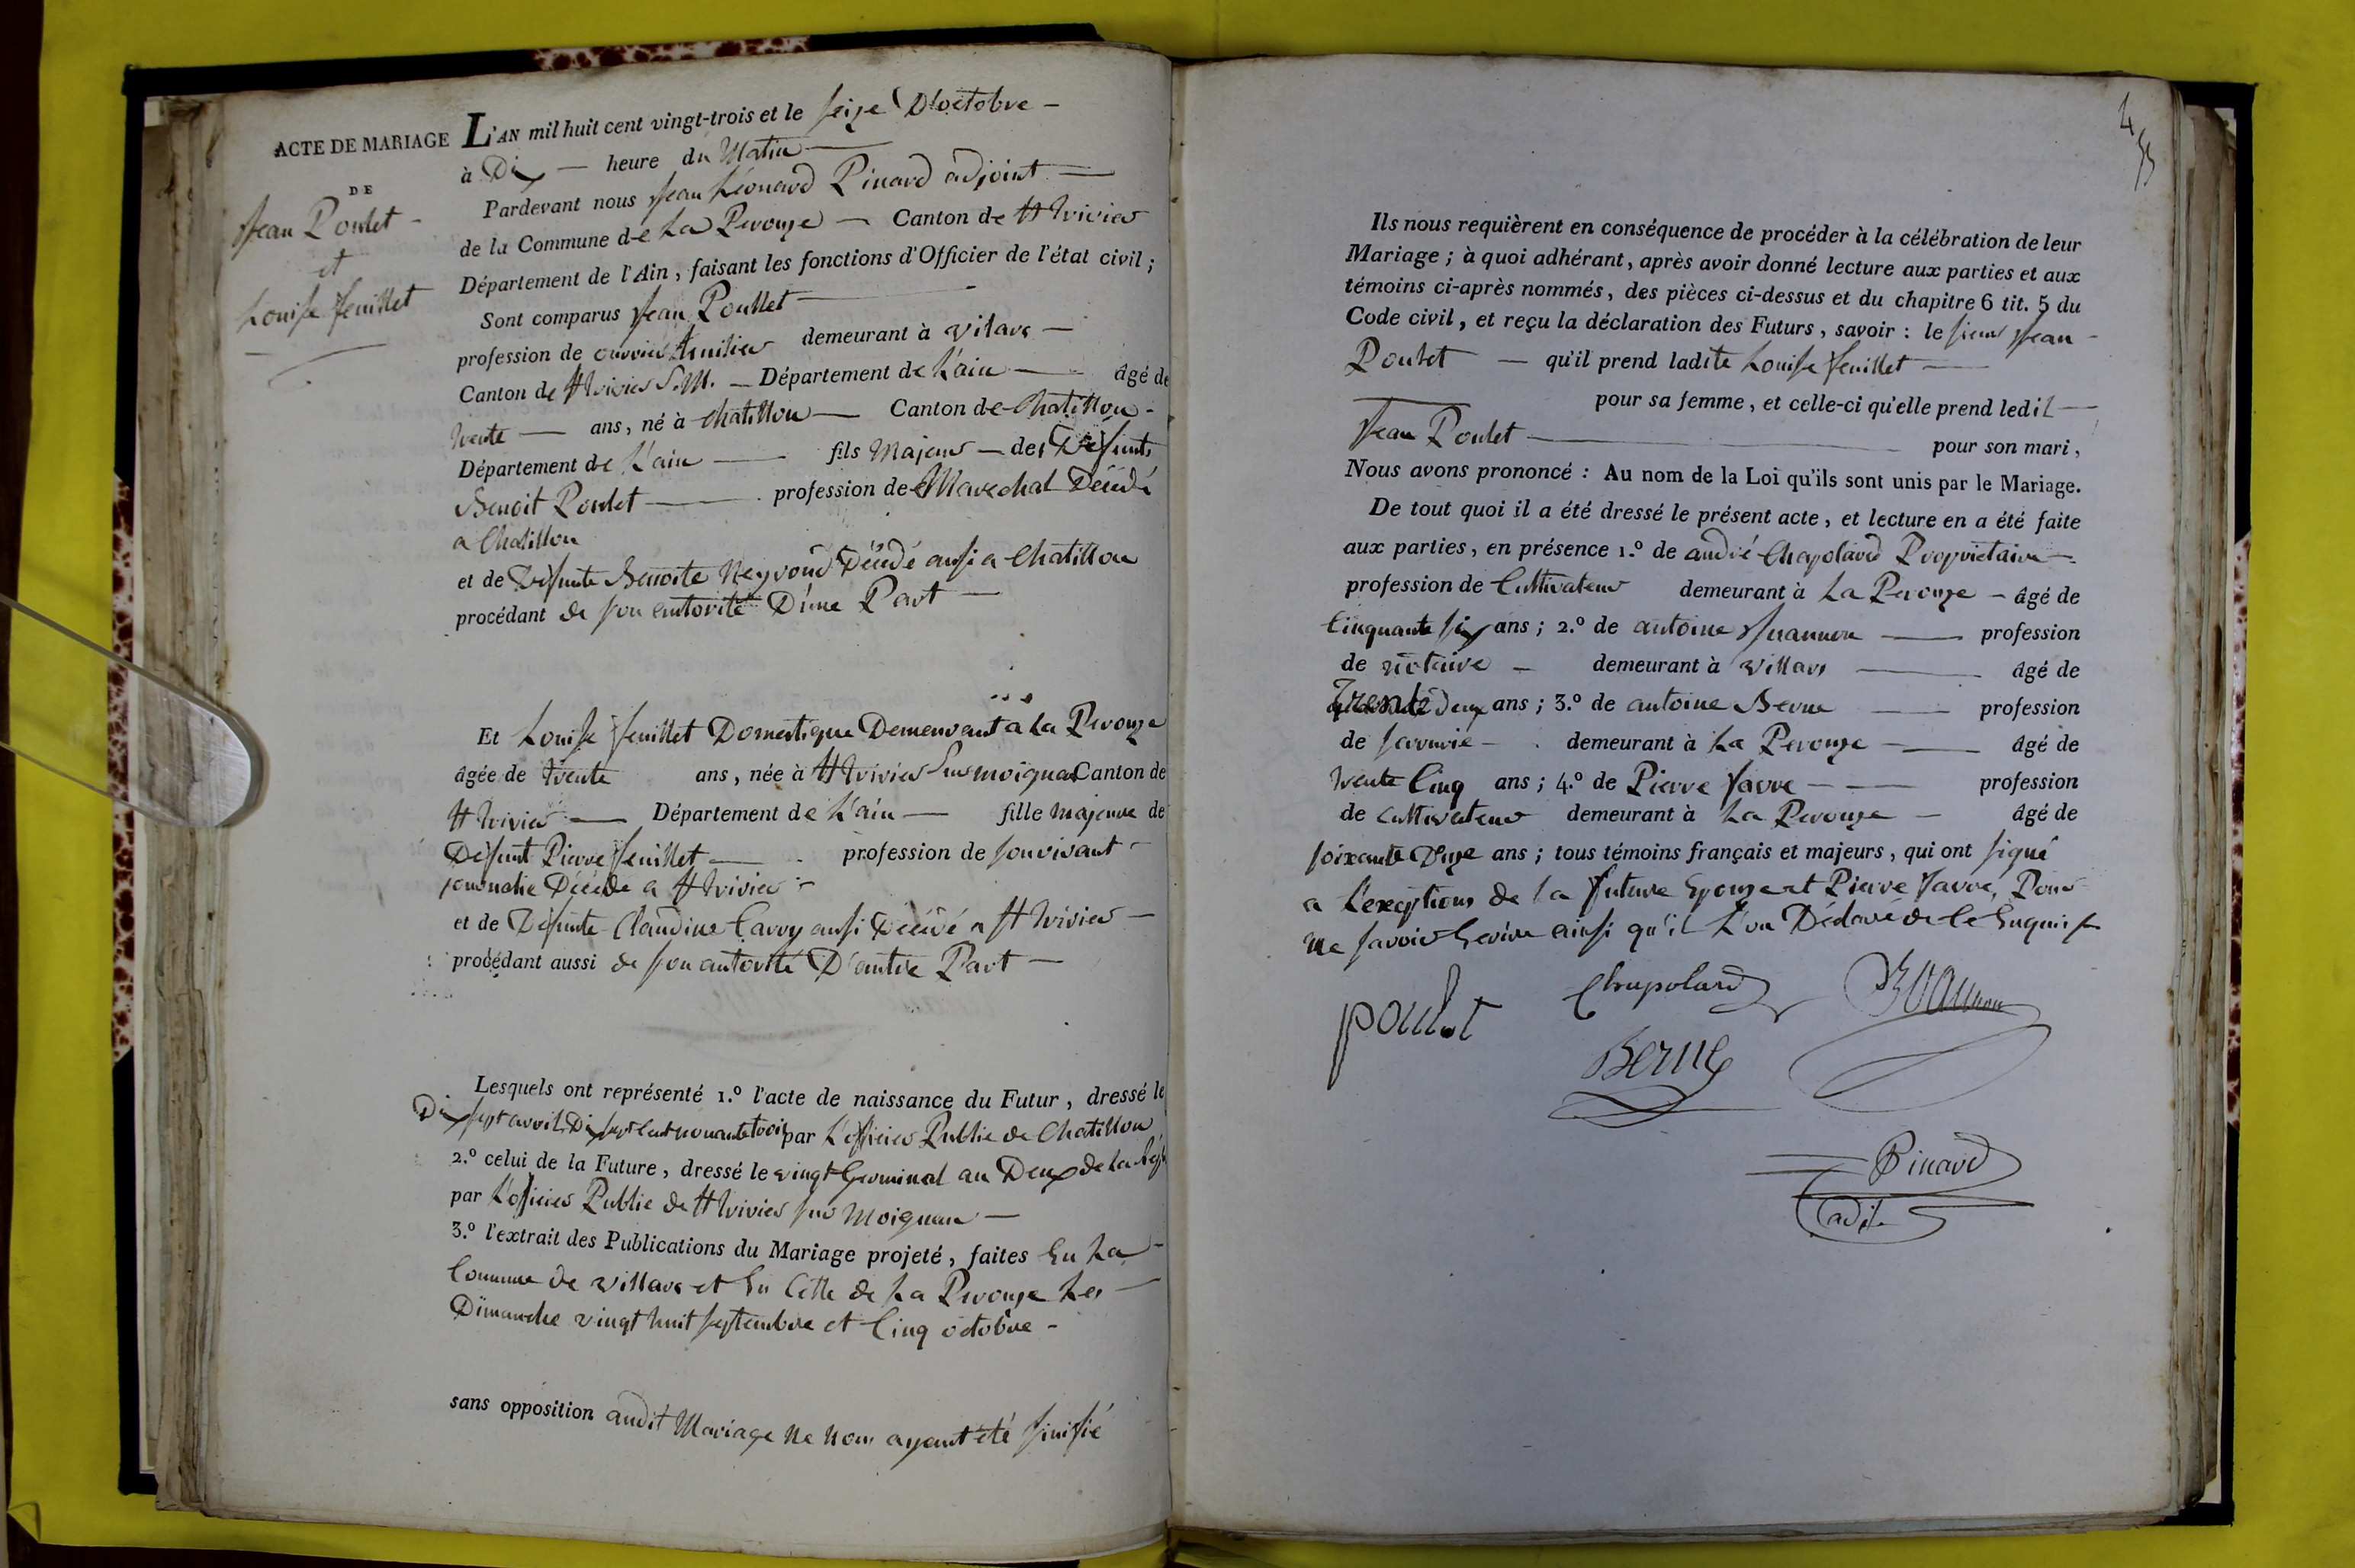 ACTE DE MARIAGE
DE
Jean Poulet -
et
Louise feuillet
L'AN mil huit cent vingt-trois et le seize D'octobre -
à Dix - heure du Matin
Pardevant nous Jean Léonard Pinard adjoint
de la Commune de La Perouze - Canton de St trivier
Département de l'Ain, faisant les fonctions d'Officier de l'état civil ;
Sont comparus Jean Poullet
profession de ouvrier demeurant à vilars -
Canton de St trivier S. M. - Département de L'ain - âgé de
trente - ans, né à chatillon - Canton de Chatillon -
Département de L'ain - fils Majeur - des Défunts
Benoit Poulet - profession de Marechal Décédé
a Chatillon
et de Défunte Benoite Neyroud Décédé ausi a Chatillon
procédant de son autorité D'une Part -
Et Louise feuillet Domestique Demeurant a La Perouze
âgée de trente ans, née à St trivier Sur moignan Canton de
St trivier - Département de L'ain - fille majeure de
Défunt Pierre feuillet - profession de son vivant -
Décédé a St trivier -
et de Défunte Claudine Carry ausi Décédé a St trivier -
procédant aussi de son autorité D'autre Part -
Lesquels ont représenté 1.º l'acte de naissance du Futur, dressé le
Dix sept avril Dix sept Cent nonante trois par L'officier Public de Chatillon
2.º celui de la Future, dressé le vingt Germinal an Deux de la Rép
par L'officier Public de St trivier sur Moignan -
3.º l'extrait des Publications du Mariage projeté, faites En La -
Commune de villars et En Celle de La Perouze Les -
Dimanche vingt huit septembre et Cinq octobre -
sans opposition audit Mariage ne nous ayant été sinifié
Ils nous requièrent en conséquence de procéder à la célébration de leur
Mariage ; à quoi adhérant, après avoir donné lecture aux parties et aux
témoins ci-après nommés, des pièces ci-dessus et du chapitre 6 tit. 5 du
Code civil, et reçu la déclaration des Futurs, savoir : le sieur Jean -
Poulet - qu'il prend ladite Louise feuillet -
pour sa femme, et celle-ci qu'elle prend ledit -
Jean Poulet - pour son mari,
Nous avons prononcé : Au nom de la Loi qu'ils sont unis par le Mariage.
De tout quoi il a été dressé le présent acte, et lecture en a été faite
aux parties, en présence 1.º de andré Chapolard Proprietaire -
profession de Cultivateur demeurant à La Perouze - âgé de
Cinquante six ans ; 2.º de antoine - profession
de notaire - demeurant à villars - âgé de
Trente Deux ans ; 3.º de antoine Berne - profession
de demeurant à La Perouze - âgé de
trente Cinq ans ; 4.º de Pierre favre - profession
de Cultivateur demeurant à La Perouze - âgé de
soixante Onze ans ; tous témoins français et majeurs, qui ont signé
a L'exeptions de la future Epouze et Pierre favre, Pour
ne savoir Ecrire ainsi qu'il L'on Déclaré de Ce Enquis
poulet Chapolard
Berne
Pinard
adjt